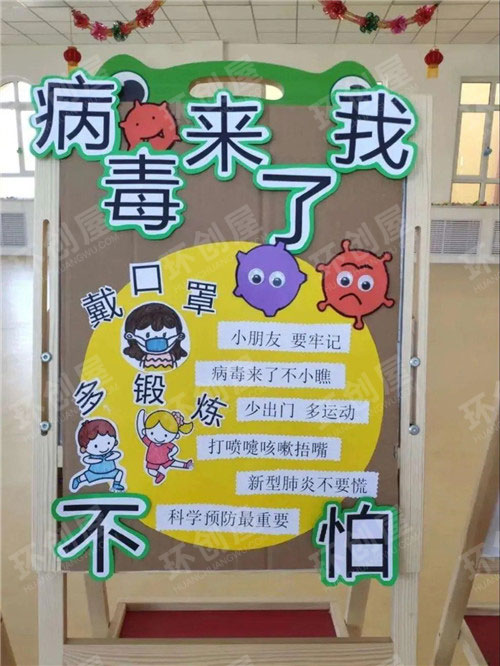 病毒来了我
不怕
戴口罩
多锻炼
小朋友 要牢记
病毒来了不小瞧
少出门 多运动
打喷嚏咳嗽捂嘴
新型肺炎不要慌
科学预防最重要
环创屋
HUANCHUANGWU.COM